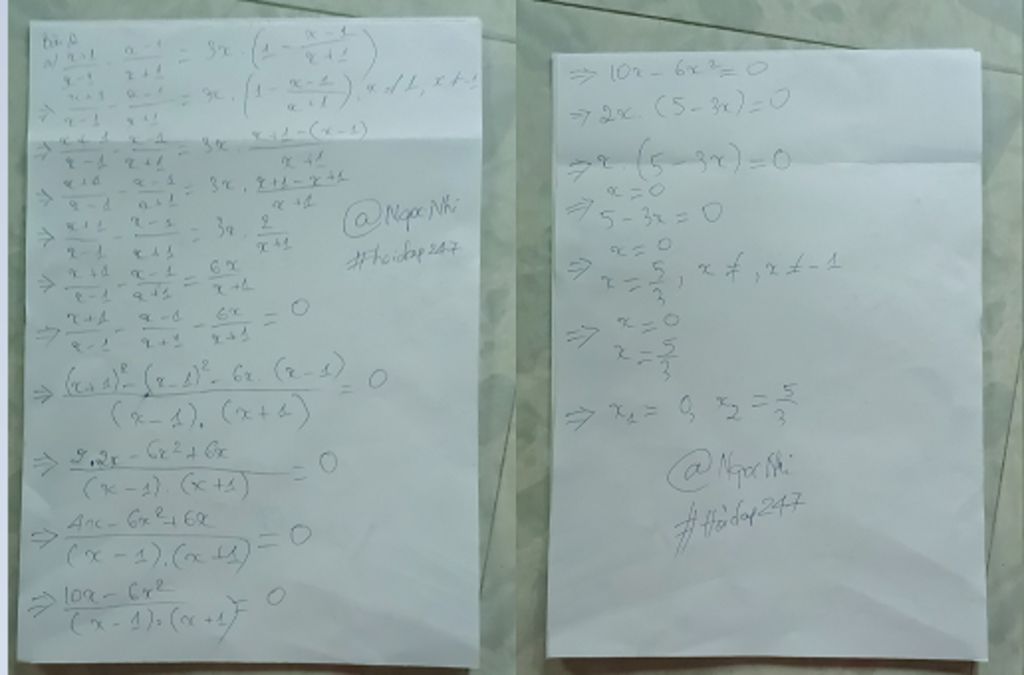 Bài 2
a) x+1/x-1 - x-1/x+1 = 3x . (1 - x-1/x+1)
=> x+1/x-1 - x-1/x+1 = 3x . (1 - x-1/x+1), x ≠ 1, x ≠ -1
=> x+1/x-1 - x-1/x+1 = 3x . x+1-(x-1)/x+1
=> x+1/x-1 - x-1/x+1 = 3x . x+1-x+1/x+1
=> x+1/x-1 - x-1/x+1 = 3x . 2/x+1
=> x+1/x-1 - x-1/x+1 = 6x/x+1
=> x+1/x-1 - x-1/x+1 - 6x/x+1 = 0
=> (x+1)² - (x-1)² - 6x . (x-1)/(x-1).(x+1) = 0
=> 2.2x - 6x² + 6x/(x-1).(x+1) = 0
=> 4x - 6x² + 6x/(x-1).(x+1) = 0
=> 10x - 6x²/(x-1).(x+1) = 0
@NgocNhi
#hoidap247
=> 10x - 6x² = 0
=> 2x . (5 - 3x) = 0
=> x . (5 - 3x) = 0
=> x = 0
5 - 3x = 0
=> x = 0
x = 5/3, x ≠ , x ≠ -1
=> x = 0
x = 5/3
=> x₁ = 0, x₂ = 5/3
@NgocNhi
#Hoidap247